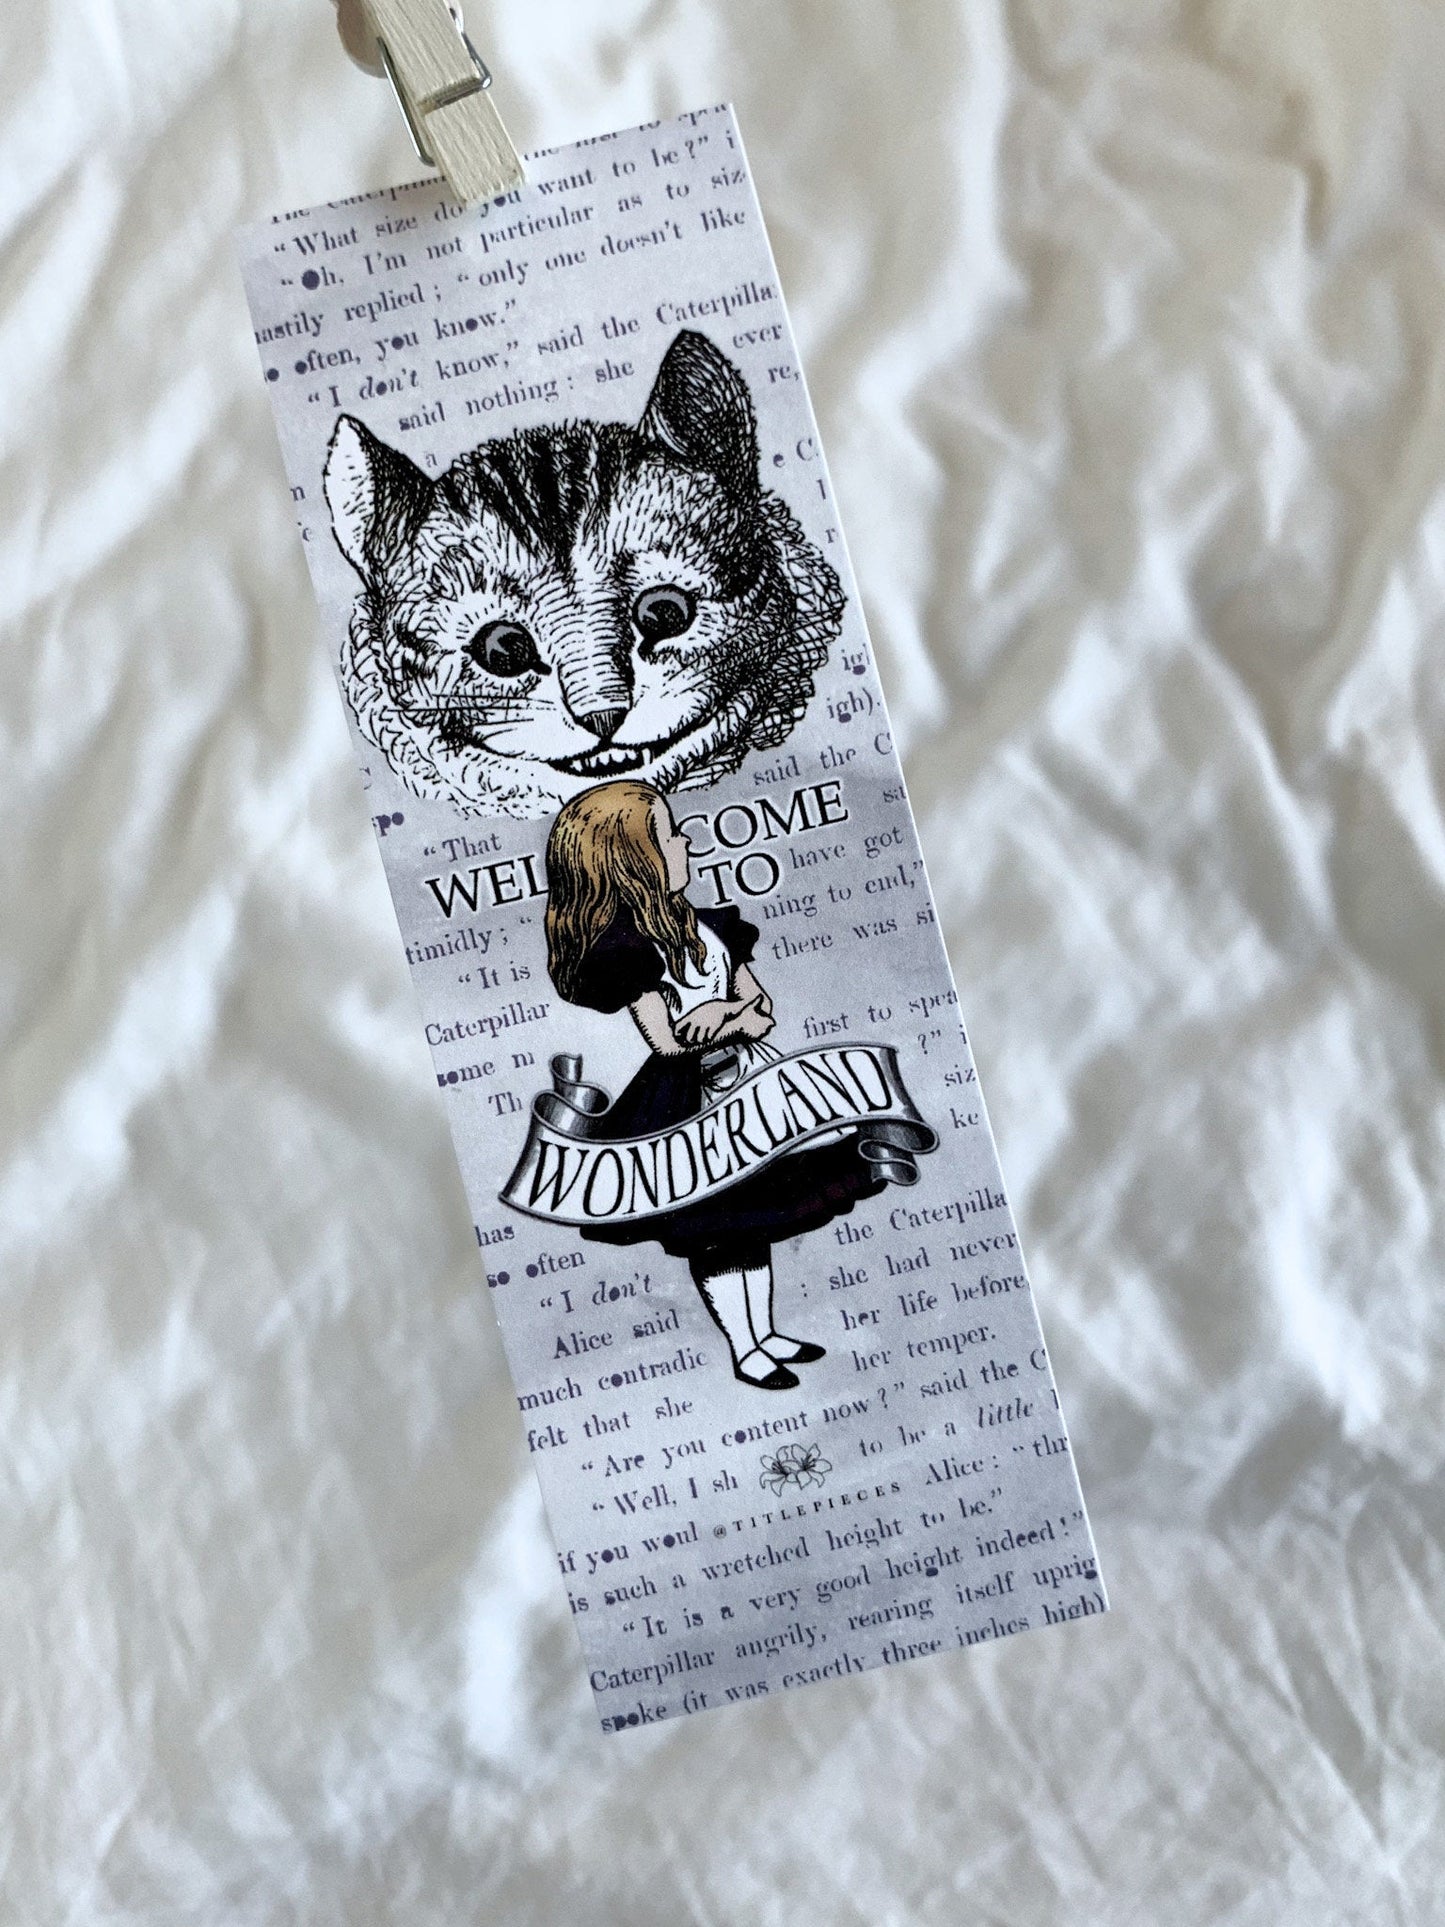 the first to spea
"What size do you want to be?" i
"Oh, I'm not particular as to siz
hastily replied; "only one doesn't like
so often, you know."
"I don't know," said the Caterpilla
said nothing: she ever
a re,
e C
igh).
said the C
spo
"That WELCOME
TO have got
timidly; " ning to end,"
"It is there was si
Caterpillar first to spea
some m ?" i
Th siz
WONDERLAND ke
has the Caterpilla
so often : she had never
"I don't her life before,
Alice said her temper.
much contradic
felt that she
"Are you content now?" said the C
"Well, I sh to be a little l
if you woul @TITLEPIECES Alice: "thr
is such a wretched height to be."
"It is a very good height indeed!"
Caterpillar angrily, rearing itself uprig
spoke (it was exactly three inches high)